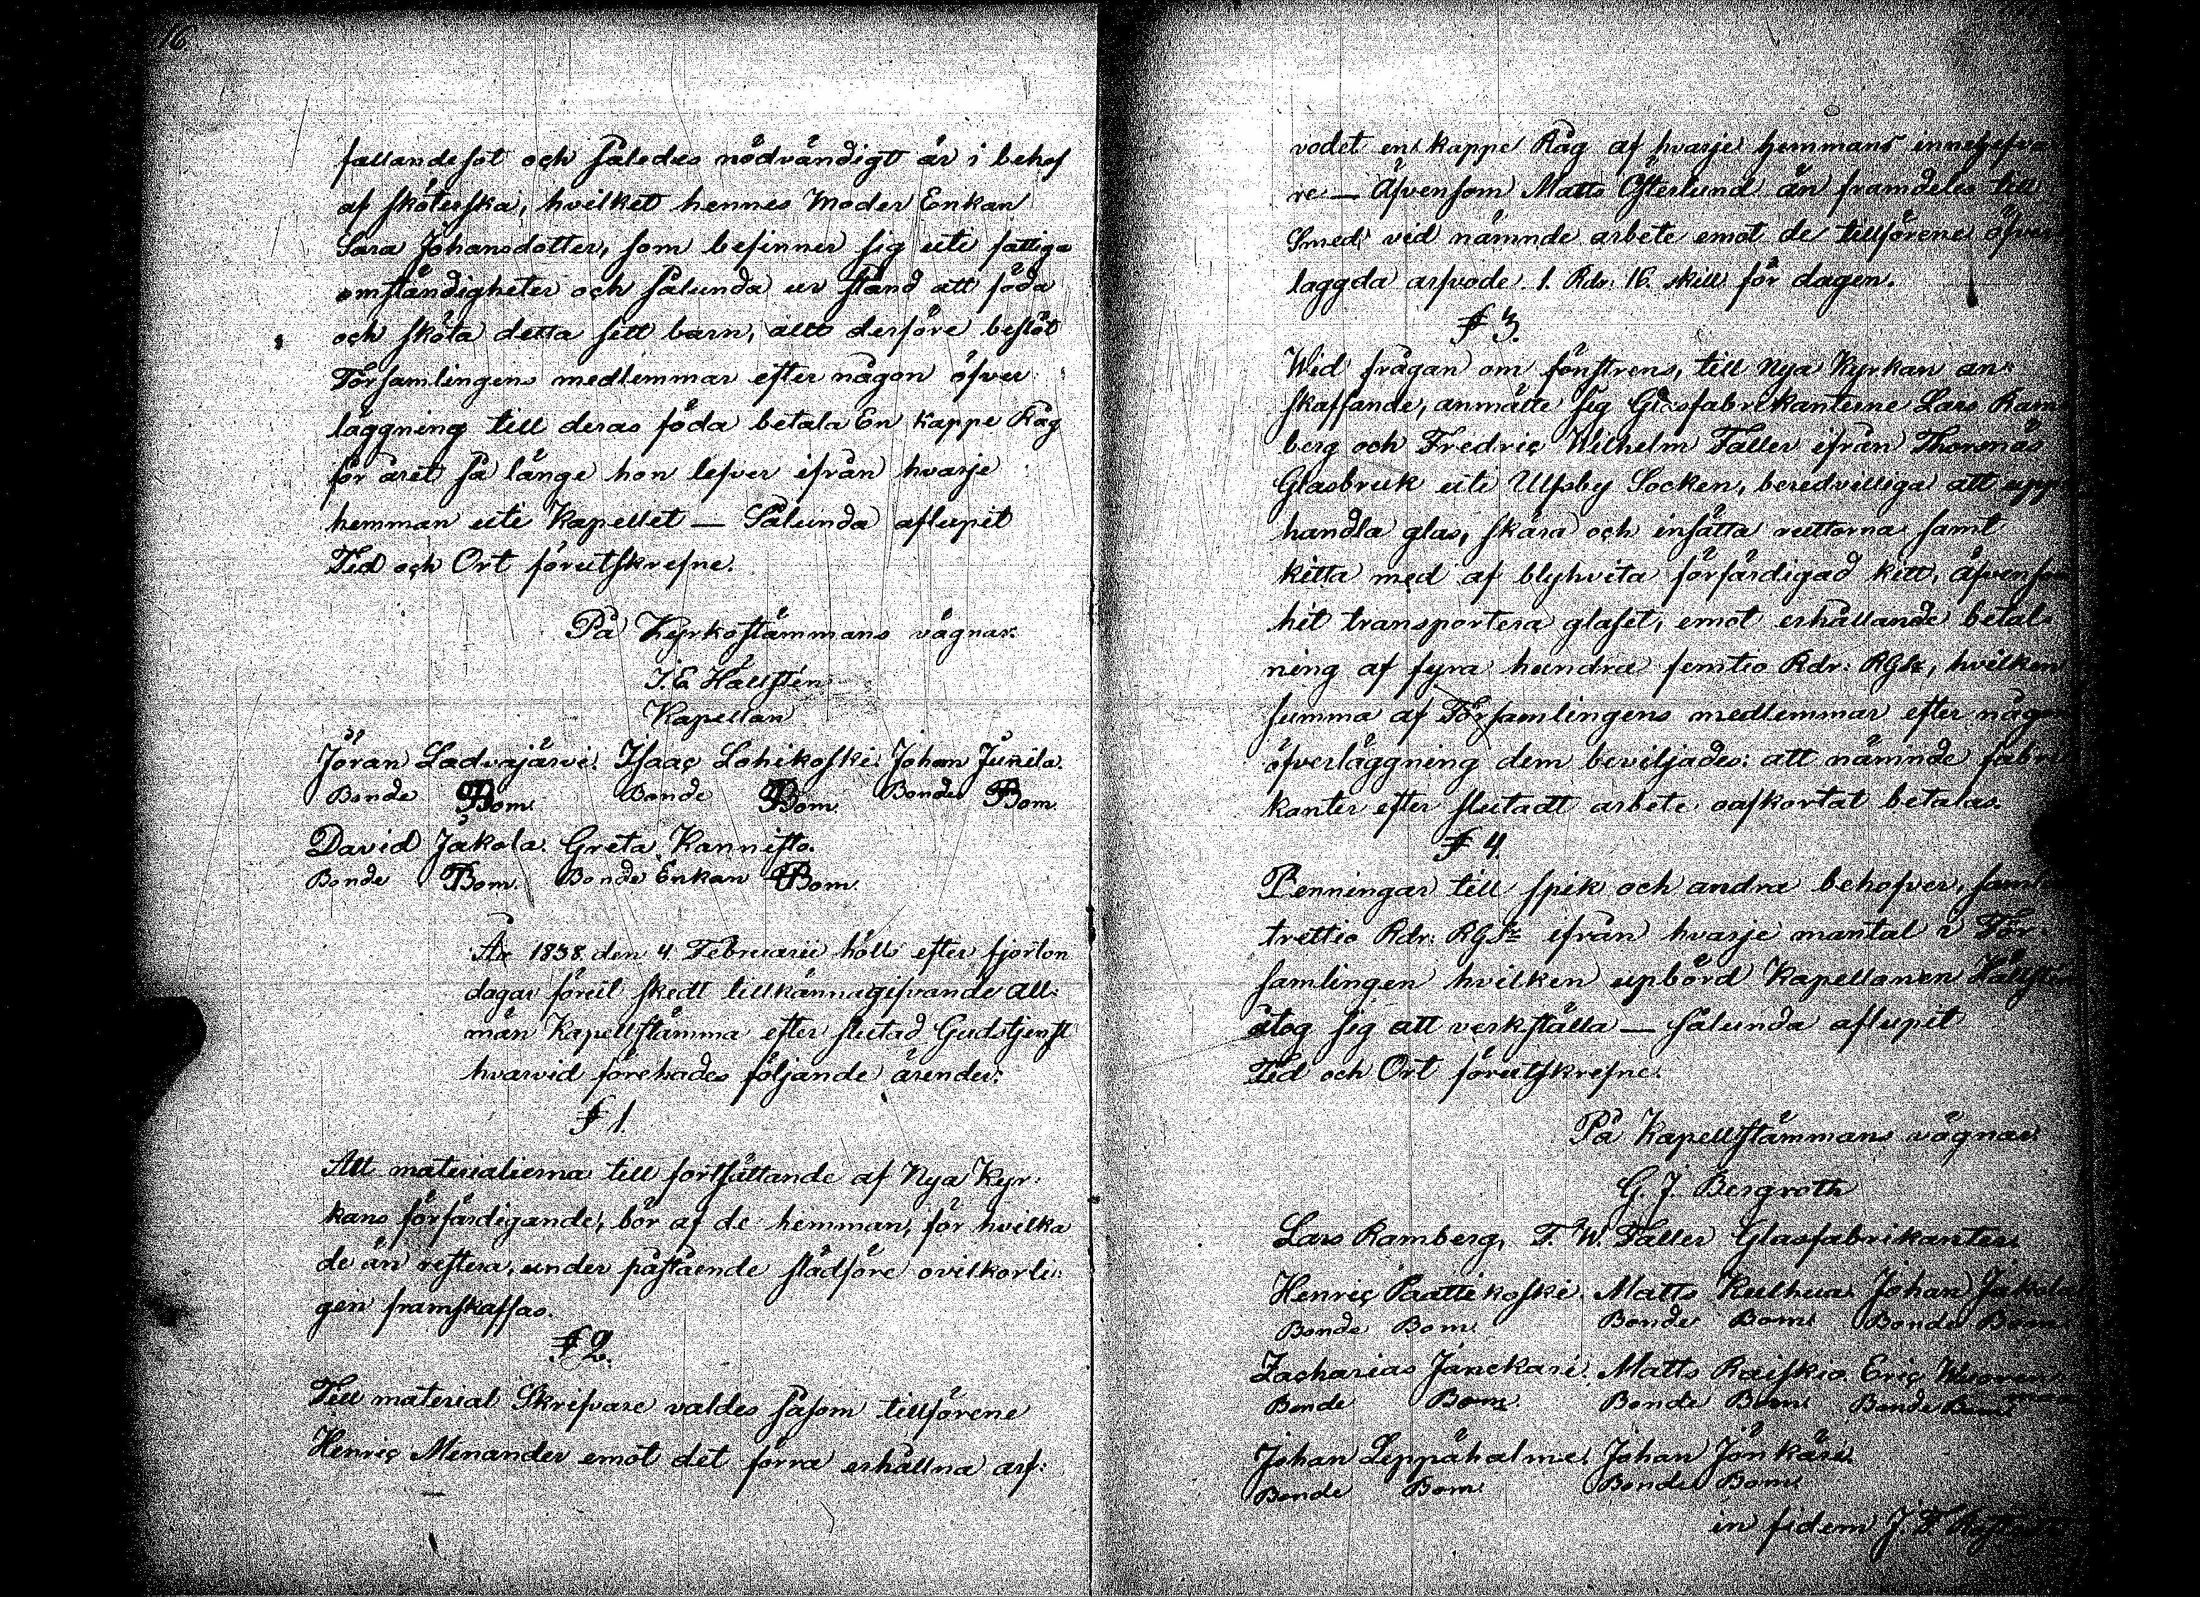 16
fallandesot och således nödvändigt är i behof
af sköterska, hvilket hennes Moder Enkan
Sara Johansdotter, som befinner sig uti fattiga
omständigheter och sålunda ur stånd att föda
och sköta detta sitt barn, allt derföre beslöt
Församlingens medlemmar efter någon öfver
läggning till deras föda betala En kappe Råg
för året så länge hon lefver ifrån hvarje
hemman uti Kapellet — Sålunda aflupit
Tid och Ort förutskrefne.
På Kyrkostämmans vägnar:
J. E. Hällstén
Kapellan
Jöran Ladvajärvi. Isaac Lohikoski. Johan Junila.
Bonde Bom. Bonde Bom. Bonde Bom.
David Jakola. Greta Kannisto.
Bonde Bom. Bonde Enkan Bom.
År 1838 den 4 Februarii hölls efter fjorton
dagar föreut skedt tillkännagifvande All-
män Kapellstämma efter slutad Gudstjenst
hvarvid förehades följande ärender:
§ 1.
Att materialierna till fortsättande af Nya Kyr-
kans förfärdigande, bör af de hemman, för hvilka
de än restera, under påstående slädföre ovilkorli-
gen framskaffas.
§ 2.
Till material Skrifvare valdes såsom tillförene
Henric Menander emot det förra erhållna arf-
vodet en kappe Råg af hvarje hemmans innehafva
re — Äfvensom Matts Österlund än framdeles till
Smed vid nämnde arbete emot de tillförene öfver
laggda arfvode 1. Rdr. 16. skill för dagen.
§ 3.
Wid frågan om fönstrens, till Nya Kyrkan an-
skaffande, anmälte sig Glasfabrikanterne Lars Ram
berg och Fredric Wilhelm Faller ifrån Thorsnäs
Glasbruk uti Ulfsby Socken, beredvilliga att upp
handla glas, skära och insätta ruttorna samt
kitta med af blyhvita förfärdigad kitt, äfvensom
hit transportera glaset, emot erhållande betal-
ning af fyra hundra femtio Rdr. RGS, hvilken
summa af Församlingens medlemmar efter någon
öfverläggning dem beviljades: att nämnde fabri
kanter efter slutadt arbete oafkortat betalas.
§ 4.
Penningar till spik och andra behofver, samt
trettio Rdr. RGS ifrån hvarje mantal i För-
samlingen hvilken upbörd Kapellanen Hällstén
åtog sig att verkställa — sålunda aflupit
Tid och Ort förutskrefne.
På Kapellstämmans vägnar:
G. J. Bergroth
Lars Ramberg, F. W. Faller Glasfabrikanter.
Henric Paattikoski. Matts Kulhua. Johan Jakola
Bonde Bom. Bonde Bom. Bonde Bom.
Zacharias Jänckari. Matts Raiskio. Eric
Bonde Bom. Bonde Bom. Bonde Bom.
Johan Leppähalme. Johan Jönkäri.
Bonde Bom. Bonde Bom.
in fidem J. F.